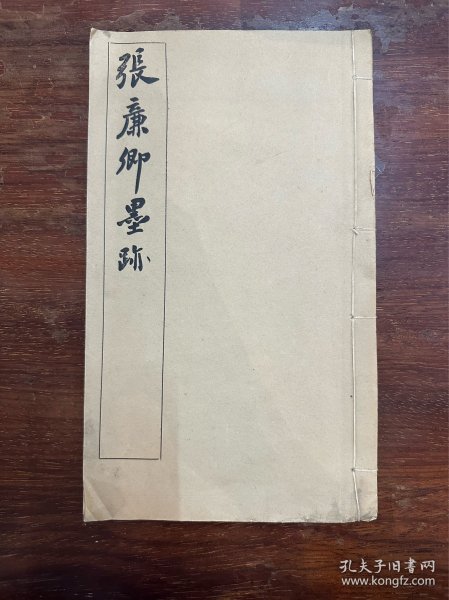 張廉卿墨跡
孔夫子旧书网
www.kongfz.com